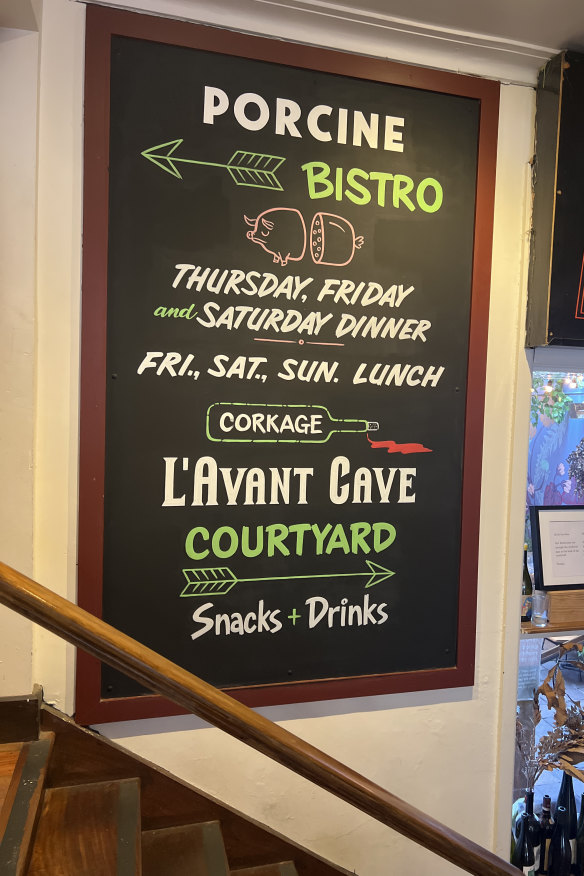 PORCINE
BISTRO
THURSDAY, FRIDAY
and SATURDAY DINNER
FRI., SAT., SUN. LUNCH
CORKAGE
L'AVANT CAVE
COURTYARD
SNACKS + DRINKS